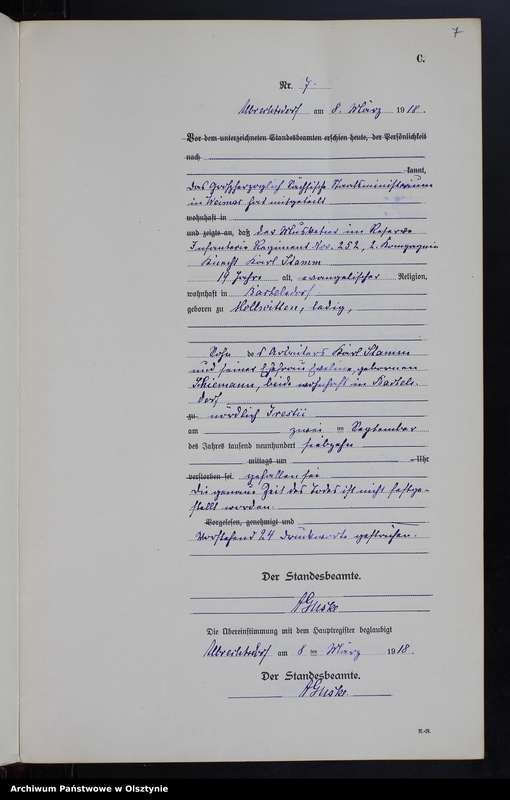 7
C.
Nr. 7.
Albrechtsdorf am 8. März 1918.
Vor dem unterzeichneten Standesbeamten erschien heute, der Persönlichkeit
nach
kannt,
das Großherzoglich Sächsische Staatsministerium
in Weimar hat mitgeteilt
wohnhaft in
und zeigte an, daß der Musketier im Reserve
Infanterie Regiment Nor. 252, 2. Kompagnie
Knecht Karl Stamm
19 Jahre alt, evangelischer Religion,
wohnhaft in Bartelsdorf
geboren zu Mollwitten, ledig,
Sohn des Arbeiters Karl Stamm
und seiner Ehefrau Eveline, geborenen
Schiemann, beide wohnhaft in Bartels-
dorf
zu nördlich Irestii
am zwei ten September
des Jahres tausend neunhundert siebzehn
mittags um Uhr
verstorben sei gefallen sei
Die genaue Zeit des Todes ist nicht festge-
stellt worden.
Vorgelesen, genehmigt und
Vorstehend 24 Druckworte gestrichen.
Der Standesbeamte.
Guske
Die Übereinstimmung mit dem Hauptregister beglaubigt
Albrechtsdorf am 8 ten März 1918.
Der Standesbeamte.
Guske
R.-R.
Archiwum Państwowe w Olsztynie